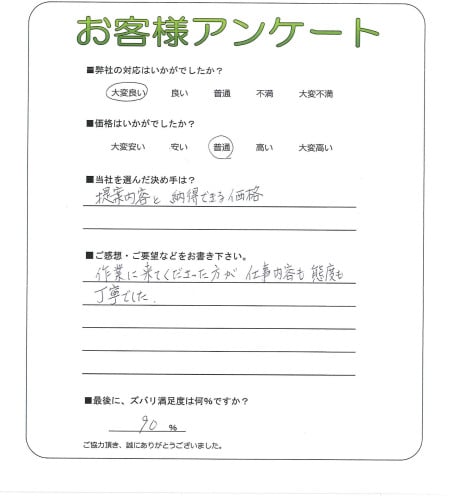 お客様アンケート
■弊社の対応はいかがでしたか?
大変良い 良い 普通 不満 大変不満
■価格はいかがでしたか?
大変安い 安い 普通 高い 大変高い
■当社を選んだ決め手は?
提案内容と 納得できる価格
■ご感想・ご要望などをお書き下さい。
作業に来てくださった方が 仕事内容も 態度も
丁寧でした.
■最後に、ズバリ満足度は何%ですか?
90 %
ご協力頂き、誠にありがとうございました。